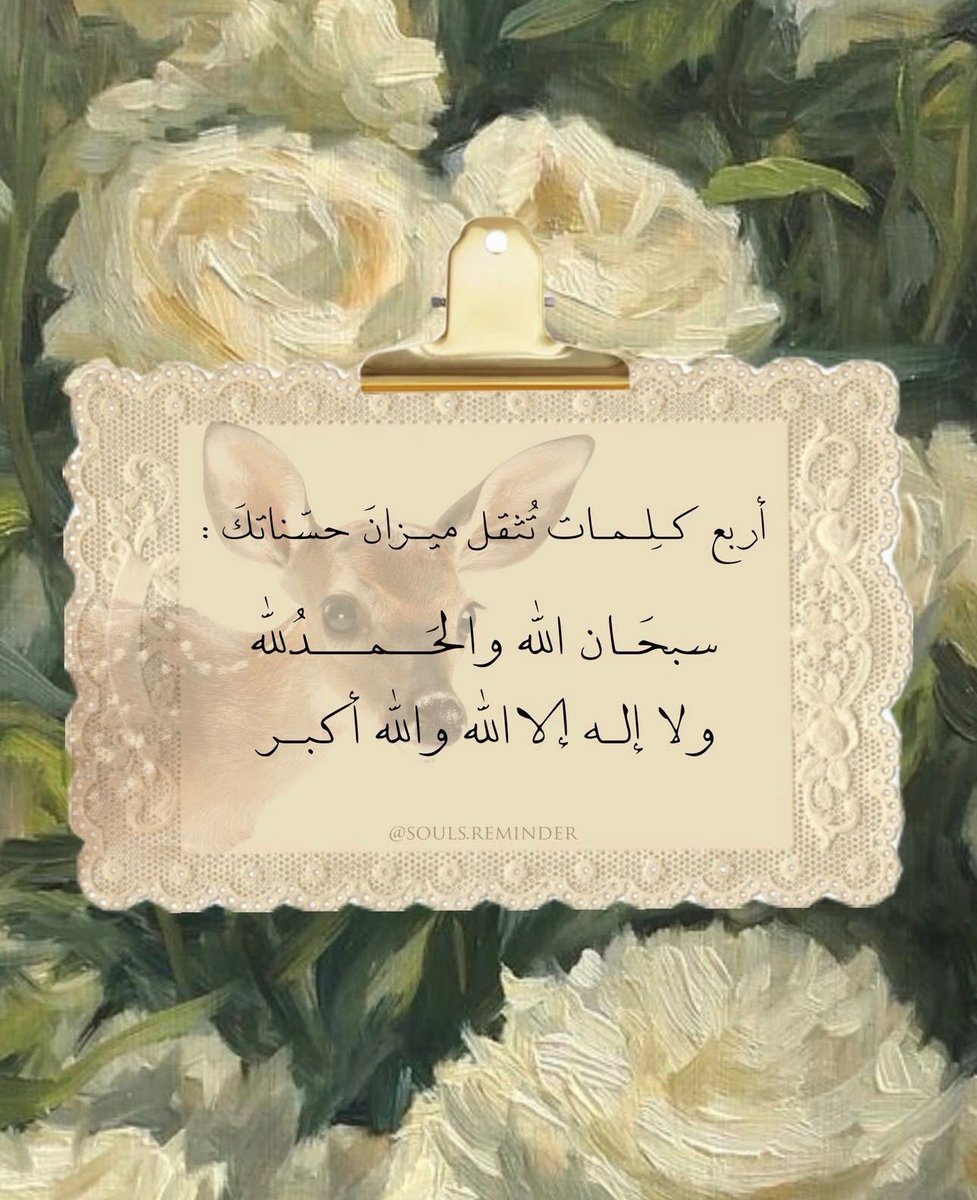 أربع كـلِـمـات تُثقل ميـزانَ حسّناتكَ :
سبحَـان الله والحَـمـــدُلله
ولا إلـه إلا الله والله أكبـر
@SOULS.REMINDER